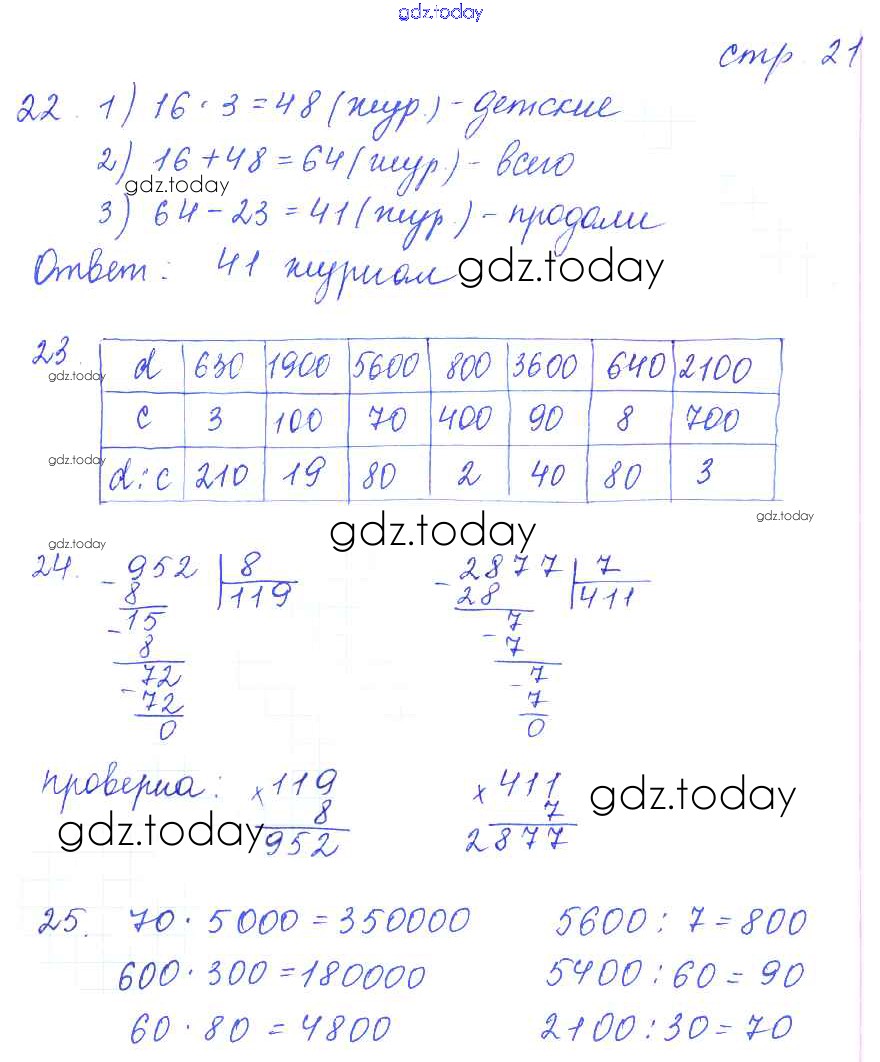 gdz.today
стр. 21
22. 1) 16 · 3 = 48 (жур.) - детские
2) 16 + 48 = 64 (жур.) - всего
gdz.today
3) 64 - 23 = 41 (жур.) - продали
Ответ: 41 журнал gdz.today
23.
gdz.today
d 630 1900 5600 800 3600 640 2100
c 3 100 70 400 90 8 700
gdz.today
d : c 210 19 80 2 40 80 3
gdz.today
gdz.today
gdz.today
24. - 952 8 - 2877 7
8 119 28 411
- 15 7
8 - 7
72 - 7
- 72 7
0 0
проверка: x 119 x 411 gdz.today
8 7
gdz.today 952 2877
25. 70 · 5000 = 350000 5600 : 7 = 800
600 · 300 = 180000 5400 : 60 = 90
60 · 80 = 4800 2100 : 30 = 70